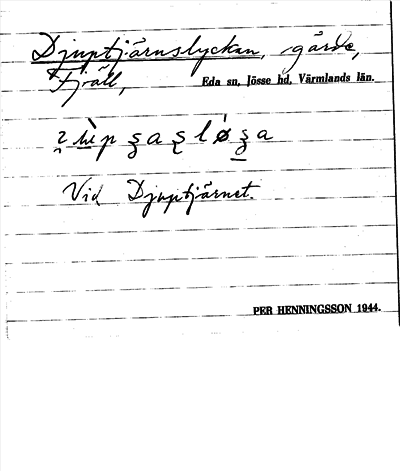 Djuptjärnslyckan, gärde,
Fjäll, Eda sn, Jösse hd, Värmlands län.
Vid Djuptjärnet.
PER HENNINGSSON 1944.